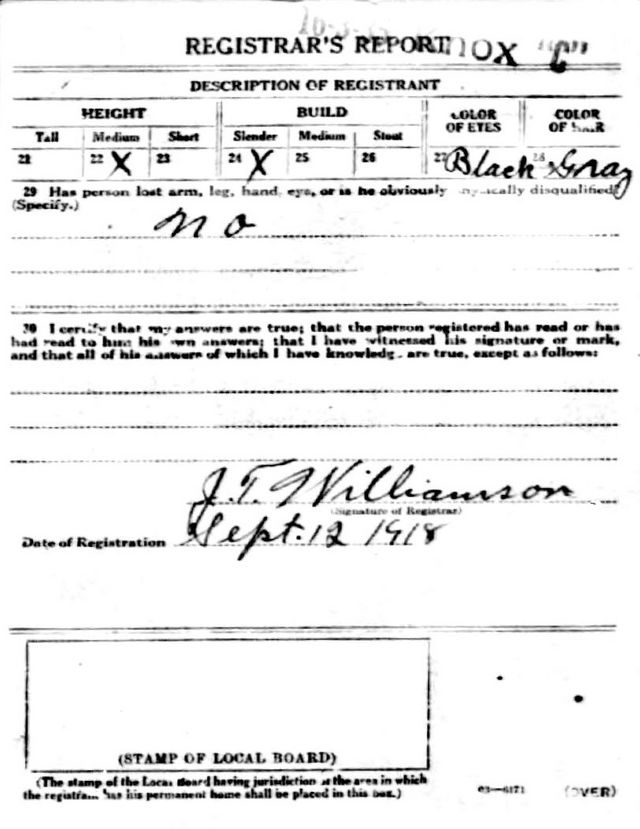 REGISTRAR'S REPORT
"C"
DESCRIPTION OF REGISTRANT
HEIGHT BUILD COLOR OF EYES COLOR OF HAIR
Tall Medium Short Slender Medium Stout
21 22 X 23 24 X 25 26 27 Black 28 Gray
29 Has person lost arm, leg, hand, eye, or is he obviously physically disqualified?
(Specify.)
no
30 I certify that my answers are true; that the person registered has read or has
had read to him his own answers; that I have witnessed his signature or mark,
and that all of his answers of which I have knowledge are true, except as follows:
J. T. Williamson
(Signature of Registrar)
Date of Registration Sept. 12 1918
(STAMP OF LOCAL BOARD)
(The stamp of the Local Board having jurisdiction of the area in which
the registrant has his permanent home shall be placed in this box.)
03—6171 (OVER)